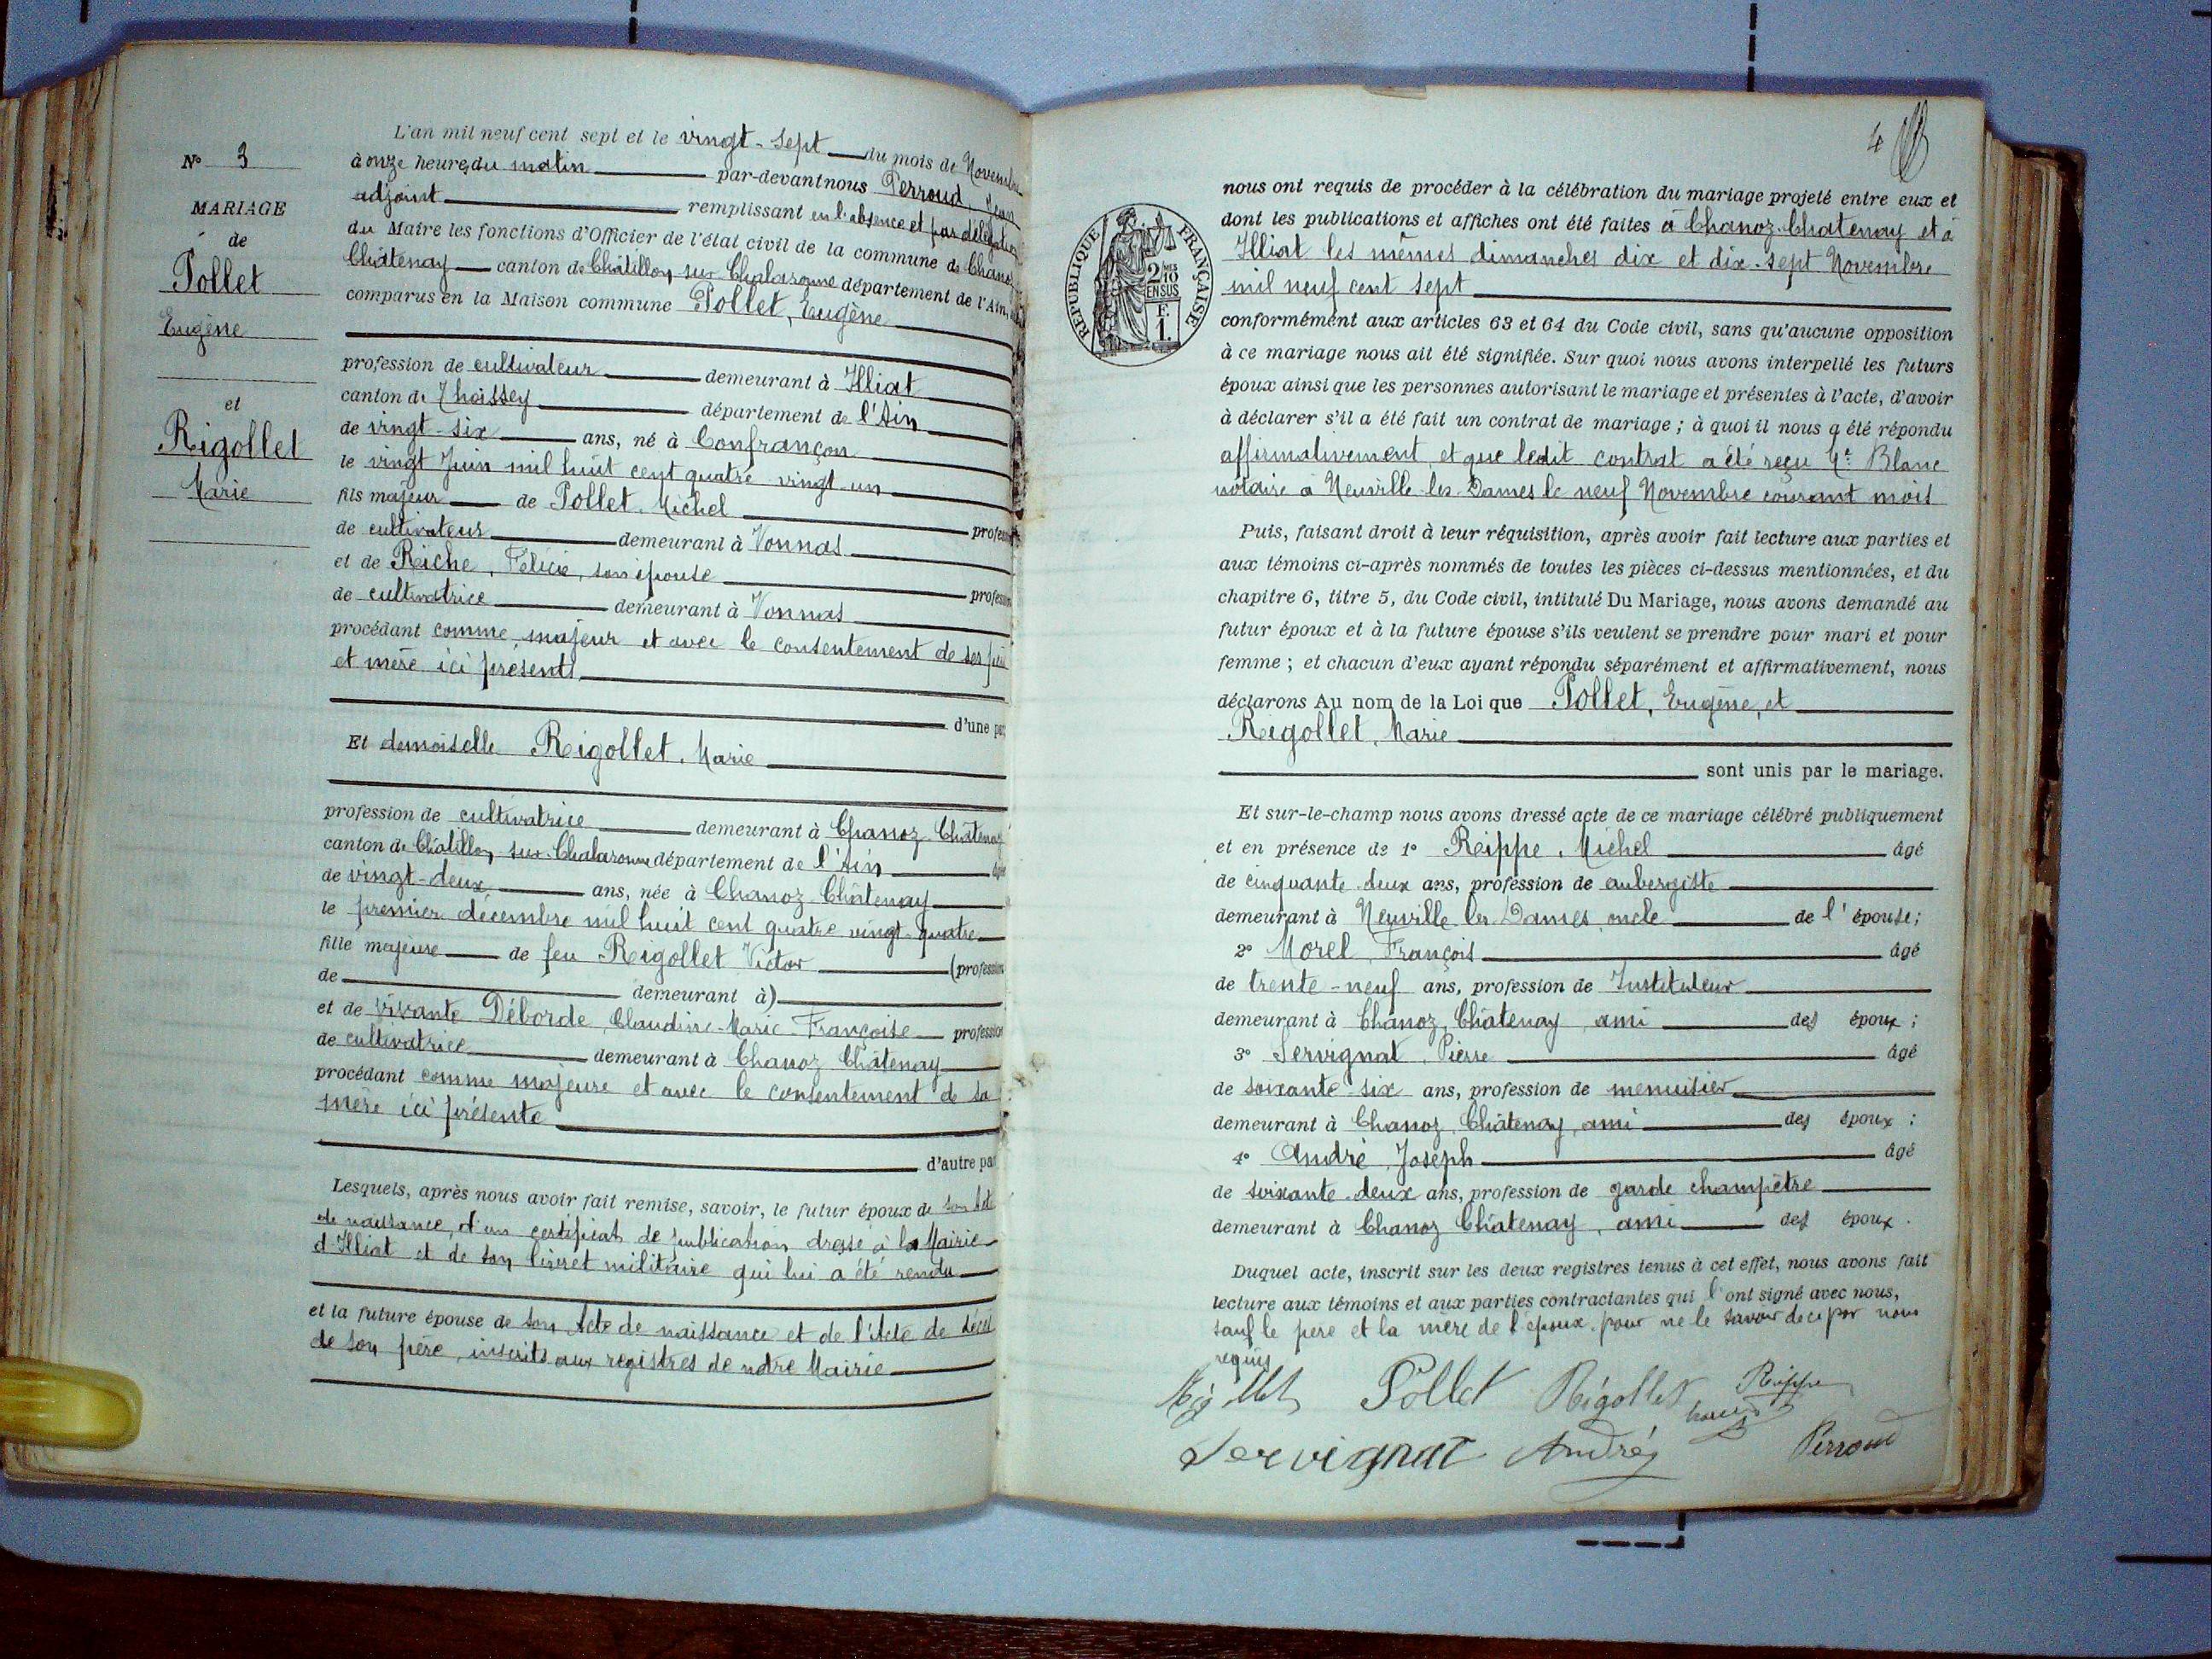 N° 3
MARIAGE
de
Pollet
Eugène
et
Rigollet
Marie
L'an mil neuf cent sept et le vingt-sept du mois de Novembre
à onze heures du matin par-devant nous Perroud, Jean
adjoint remplissant en l'absence et par délégation
du Maire les fonctions d'Officier de l'état civil de la commune de Chanoz
Châtenay canton de Châtillon sur Chalaronne département de l'Ain,
comparus en la Maison commune Pollet, Eugène
profession de cultivateur demeurant à Illiat
canton de Thoissey département de l'Ain
de vingt-six ans, né à Confrançon
le vingt Juin mil huit cent quatre vingt-un
fils majeur de Pollet, Michel profession
de cultivateur demeurant à Vonnas
et de Reiche, Félicie, son épouse profession
de cultivatrice demeurant à Vonnas
procédant comme majeur et avec le consentement de ses père
et mère ici présents
d'une part
Et demoiselle Rigollet, Marie
profession de cultivatrice demeurant à Chanoz Châtenay
canton de Châtillon sur Chalaronne département de l'Ain
de vingt-deux ans, née à Chanoz Châtenay
le premier décembre mil huit cent quatre vingt quatre
fille majeure de feu Rigollet Victor (profession
de demeurant à)
et de vivante Déborde, Claudine-Marie-Françoise profession
de cultivatrice demeurant à Chanoz Châtenay
procédant comme majeure et avec le consentement de sa
mère ici présente
d'autre part
Lesquels, après nous avoir fait remise, savoir, le futur époux de son Acte
de naissance, d'un certificat de publication dressé à la Mairie
d'Illiat et de son livret militaire qui lui a été rendu
et la future épouse de son Acte de naissance et de l'Acte de décès
de son père, inscrits aux registres de notre Mairie
4
RÉPUBLIQUE FRANÇAISE
2/10
EN SUS
F.
1.
nous ont requis de procéder à la célébration du mariage projeté entre eux et
dont les publications et affiches ont été faites à Chanoz-Chatenay et à
Illiat les mêmes dimanches dix et dix-sept Novembre
mil neuf cent sept
conformément aux articles 63 et 64 du Code civil, sans qu'aucune opposition
à ce mariage nous ait été signifiée. Sur quoi nous avons interpellé les futurs
époux ainsi que les personnes autorisant le mariage et présentes à l'acte, d'avoir
à déclarer s'il a été fait un contrat de mariage ; à quoi il nous a été répondu
affirmativement, et que ledit contrat a été reçu Me Blanc
notaire à Neuville les Dames le neuf Novembre courant mois
Puis, faisant droit à leur réquisition, après avoir fait lecture aux parties et
aux témoins ci-après nommés de toutes les pièces ci-dessus mentionnées, et du
chapitre 6, titre 5, du Code civil, intitulé Du Mariage, nous avons demandé au
futur époux et à la future épouse s'ils veulent se prendre pour mari et pour
femme ; et chacun d'eux ayant répondu séparément et affirmativement, nous
déclarons Au nom de la Loi que Pollet, Eugène, et
Rigollet, Marie
sont unis par le mariage.
Et sur-le-champ nous avons dressé acte de ce mariage célébré publiquement
et en présence de 1° Reippe, Michel âgé
de cinquante deux ans, profession de aubergiste
demeurant à Neuville les Dames, oncle de l'épouse;
2° Morel, François âgé
de trente-neuf ans, profession de Instituteur
demeurant à Chanoz Châtenay ami des époux ;
3° Servignat, Pierre âgé
de soixante-six ans, profession de menuisier
demeurant à Chanoz Châtenay, ami des époux ;
4° André, Joseph âgé
de soixante-deux ans, profession de garde champêtre
demeurant à Chanoz Châtenay, ami des époux.
Duquel acte, inscrit sur les deux registres tenus à cet effet, nous avons fait
lecture aux témoins et aux parties contractantes qui l'ont signé avec nous,
sauf le père et la mère de l'époux pour ne le savoir de ce par nous
requis
Pollet Rigollet Reippe
Servignat André Perroud